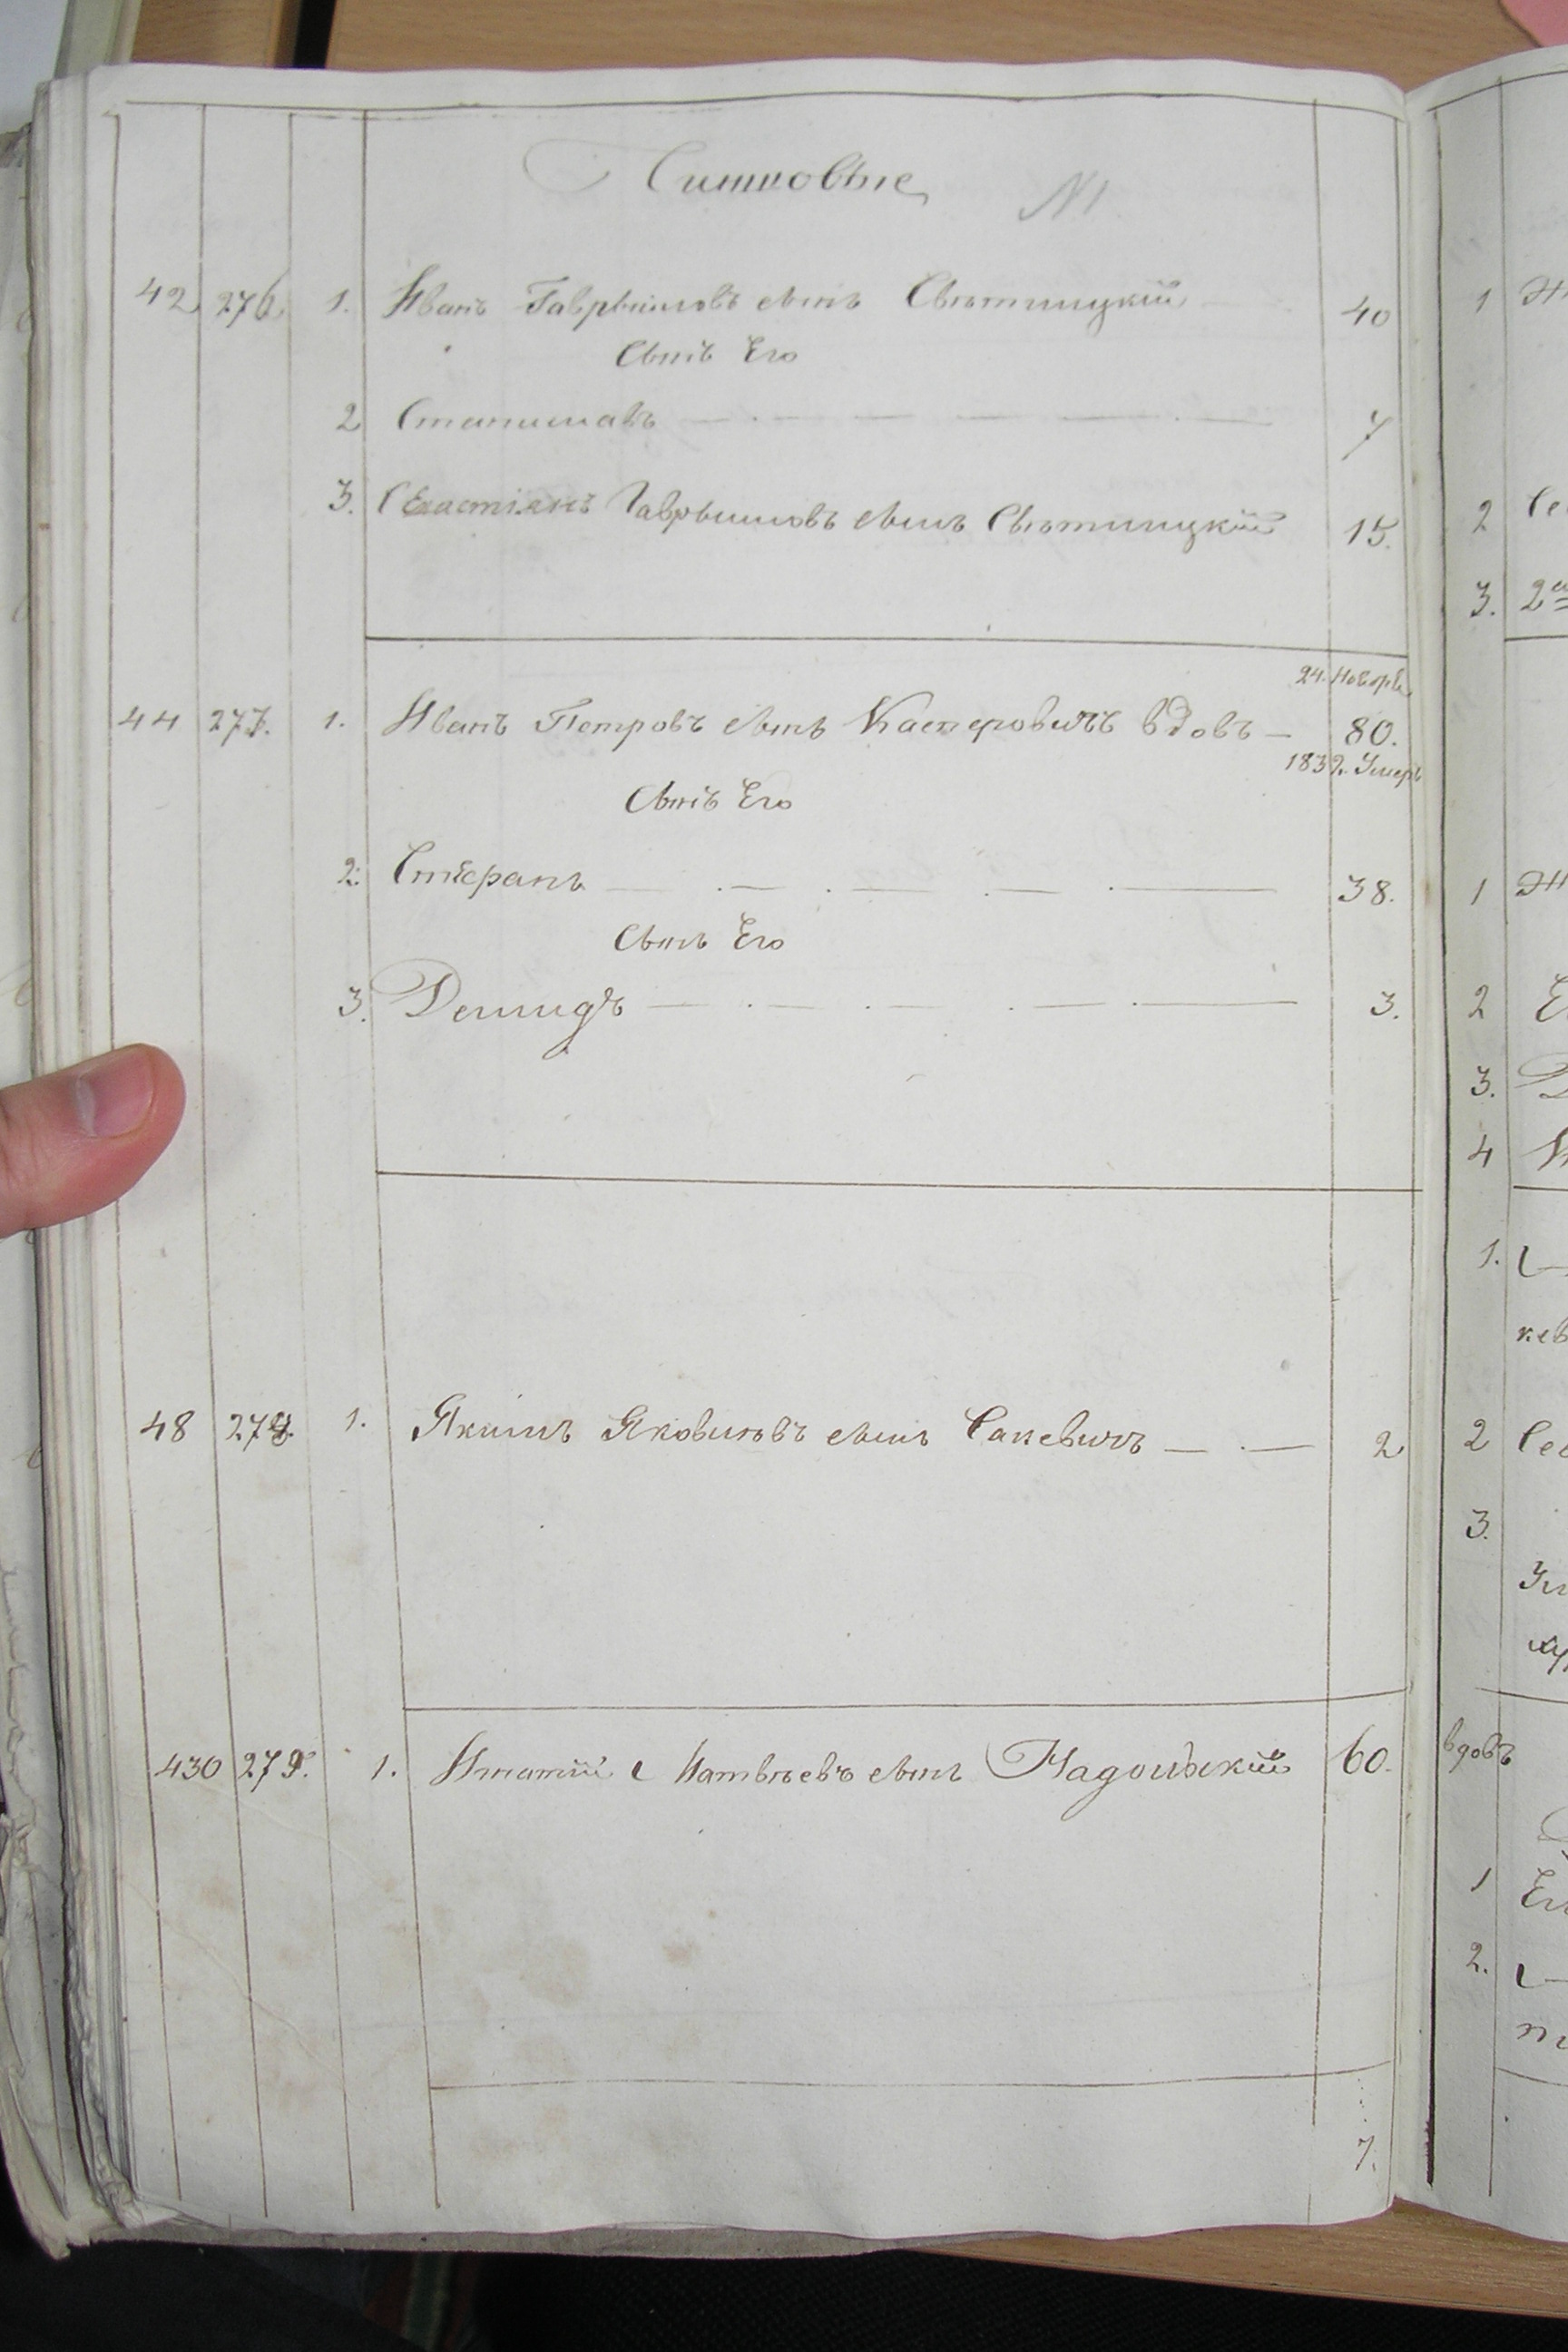 Ситковые №1
42 276 1. Иванъ Гаврыиловъ сынъ Свѣтицкій 40
Сынъ Его
2 Станиславъ 7
3. Севастіянъ Гаврыиловъ сынъ Свѣтицкій 15.
24. Ноября
44 277. 1. Иванъ Петровъ сынъ Касперовичъ вдовъ 80.
1832. Умеръ
Сынъ Его
2. Стефанъ 38.
Сынъ Его
3. Демидъ 3.
48 278. 1. Якимъ Яковлевъ сынъ Сакевичъ 2
430 279. 1. Игнатій Матвѣевъ сынъ Надольскій 60.
7.
1
2 Се
3. 2
1
2
3.
4
1.
кев
2 Се
3.
вдовъ
1
2.